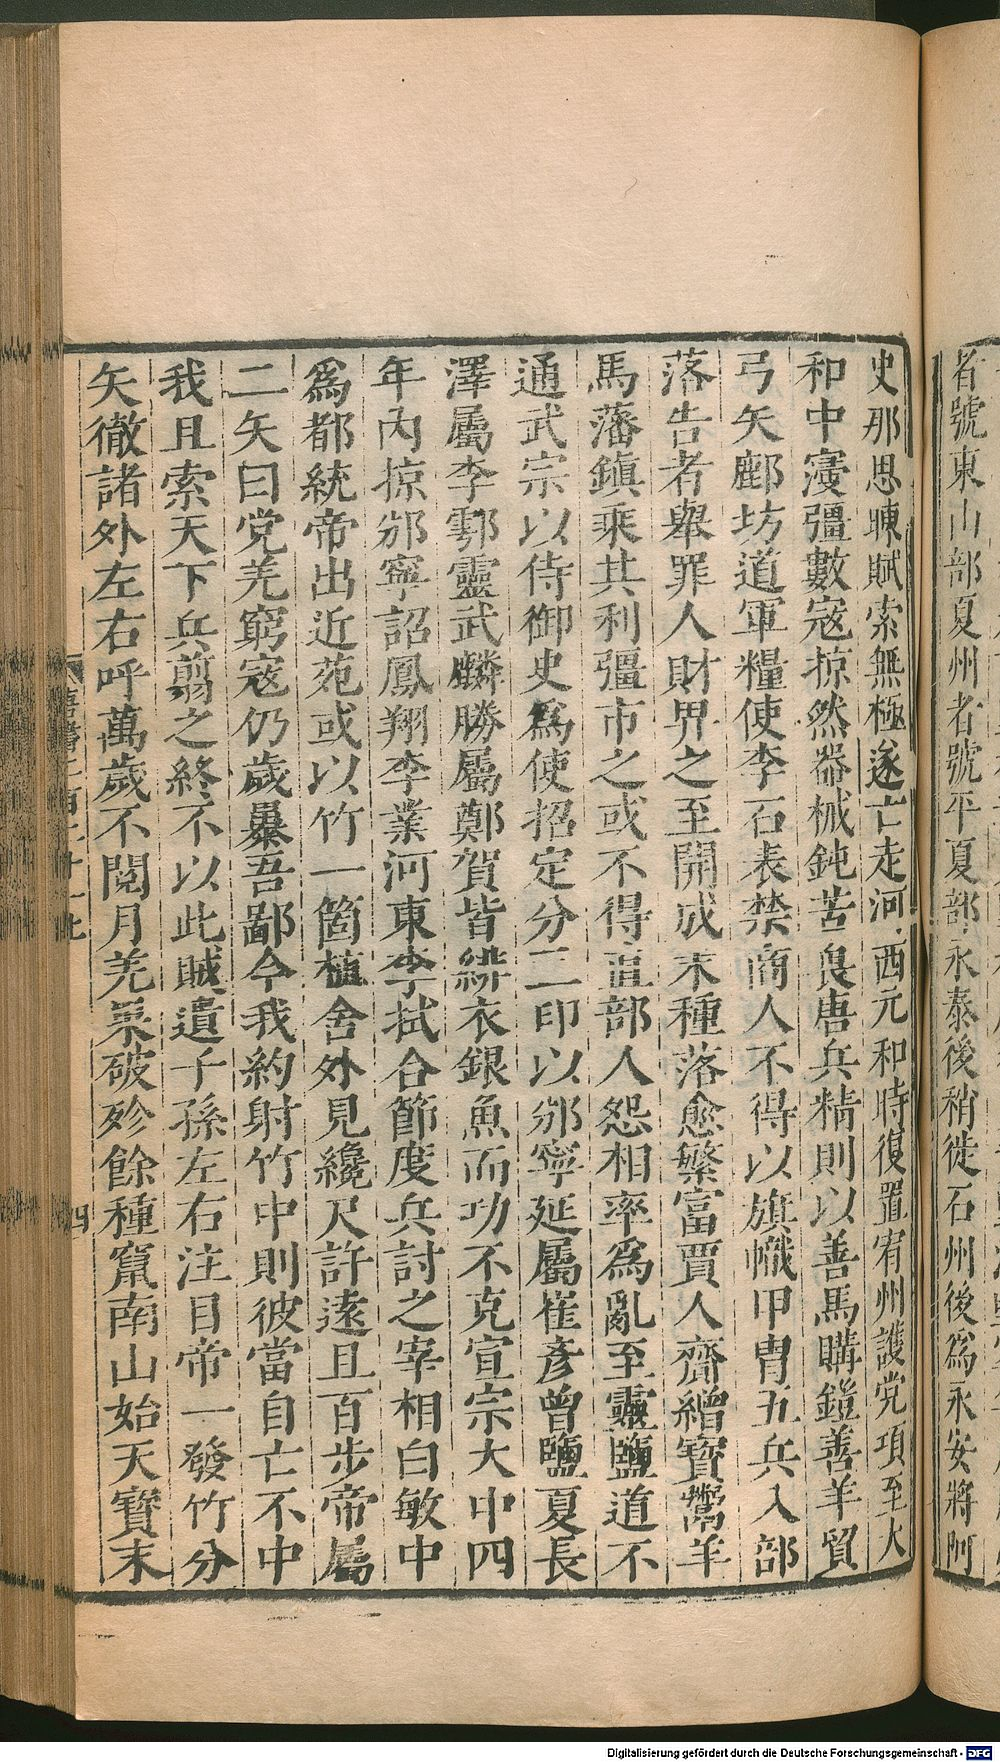 者號東山部夏州者號平夏部永泰後稍徙石州後爲永安將阿
史那思暕賦索無極遂亡走河西元和時復置宥州護党項至大
和中寖彊數寇掠然器械鈍苦畏唐兵精則以善馬購鎧善羊貿
弓矢鄜坊道軍糧使李石表禁商人不得以旗幟甲胄五兵入部
落告者舉罪人財畀之至開成末種落愈繁富賈人齎繒寶鬻羊
馬藩鎮乘其利彊市之或不得直部人怨相率爲亂至靈鹽道不
通武宗以侍御史爲使招定分三印以邠寧延屬崔彥曾鹽夏長
澤屬李鄠靈武麟勝屬鄭賀皆緋衣銀魚而功不克宣宗大中四
年內掠邠寧詔鳳翔李業河東李拭合節度兵討之宰相白敏中
爲都統帝出近苑或以竹一箇植舍外見纔尺許遠且百步帝屬
二矢曰党羌窮寇仍歲暴吾鄙今我約射竹中則彼當自亡不中
我且索天下兵翦之終不以此賊遺子孫左右注目帝一發竹分
矢徹諸外左右呼萬歲不閱月羌果破殄餘種竄南山始天寶末
四
Digitalisierung gefördert durch die Deutsche Forschungsgemeinschaft - DFG